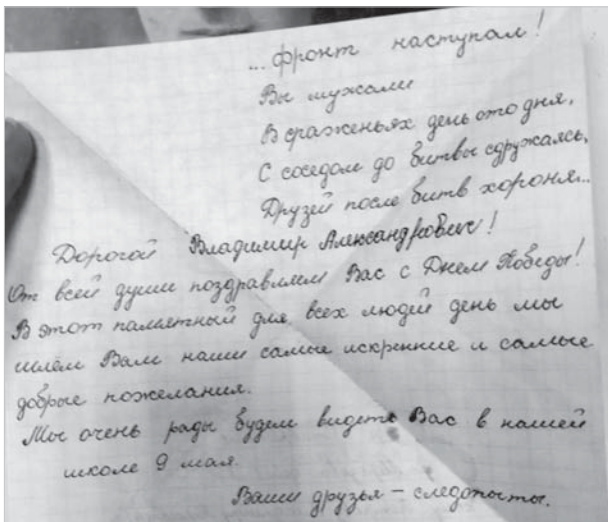 ...фронт наступал!
Вы мужали
В сраженьях день ото дня,
С соседом до битвы сдружаясь,
Друзей после битв хороня...
Дорогой Владимир Александрович!
От всей души поздравляем Вас с Днем Победы!
В этот памятный для всех людей день мы
шлём Вам наши самые искренние и самые
добрые пожелания.
Мы очень рады будем видеть Вас в нашей
школе 9 мая.
Ваши друзья – следопыты.